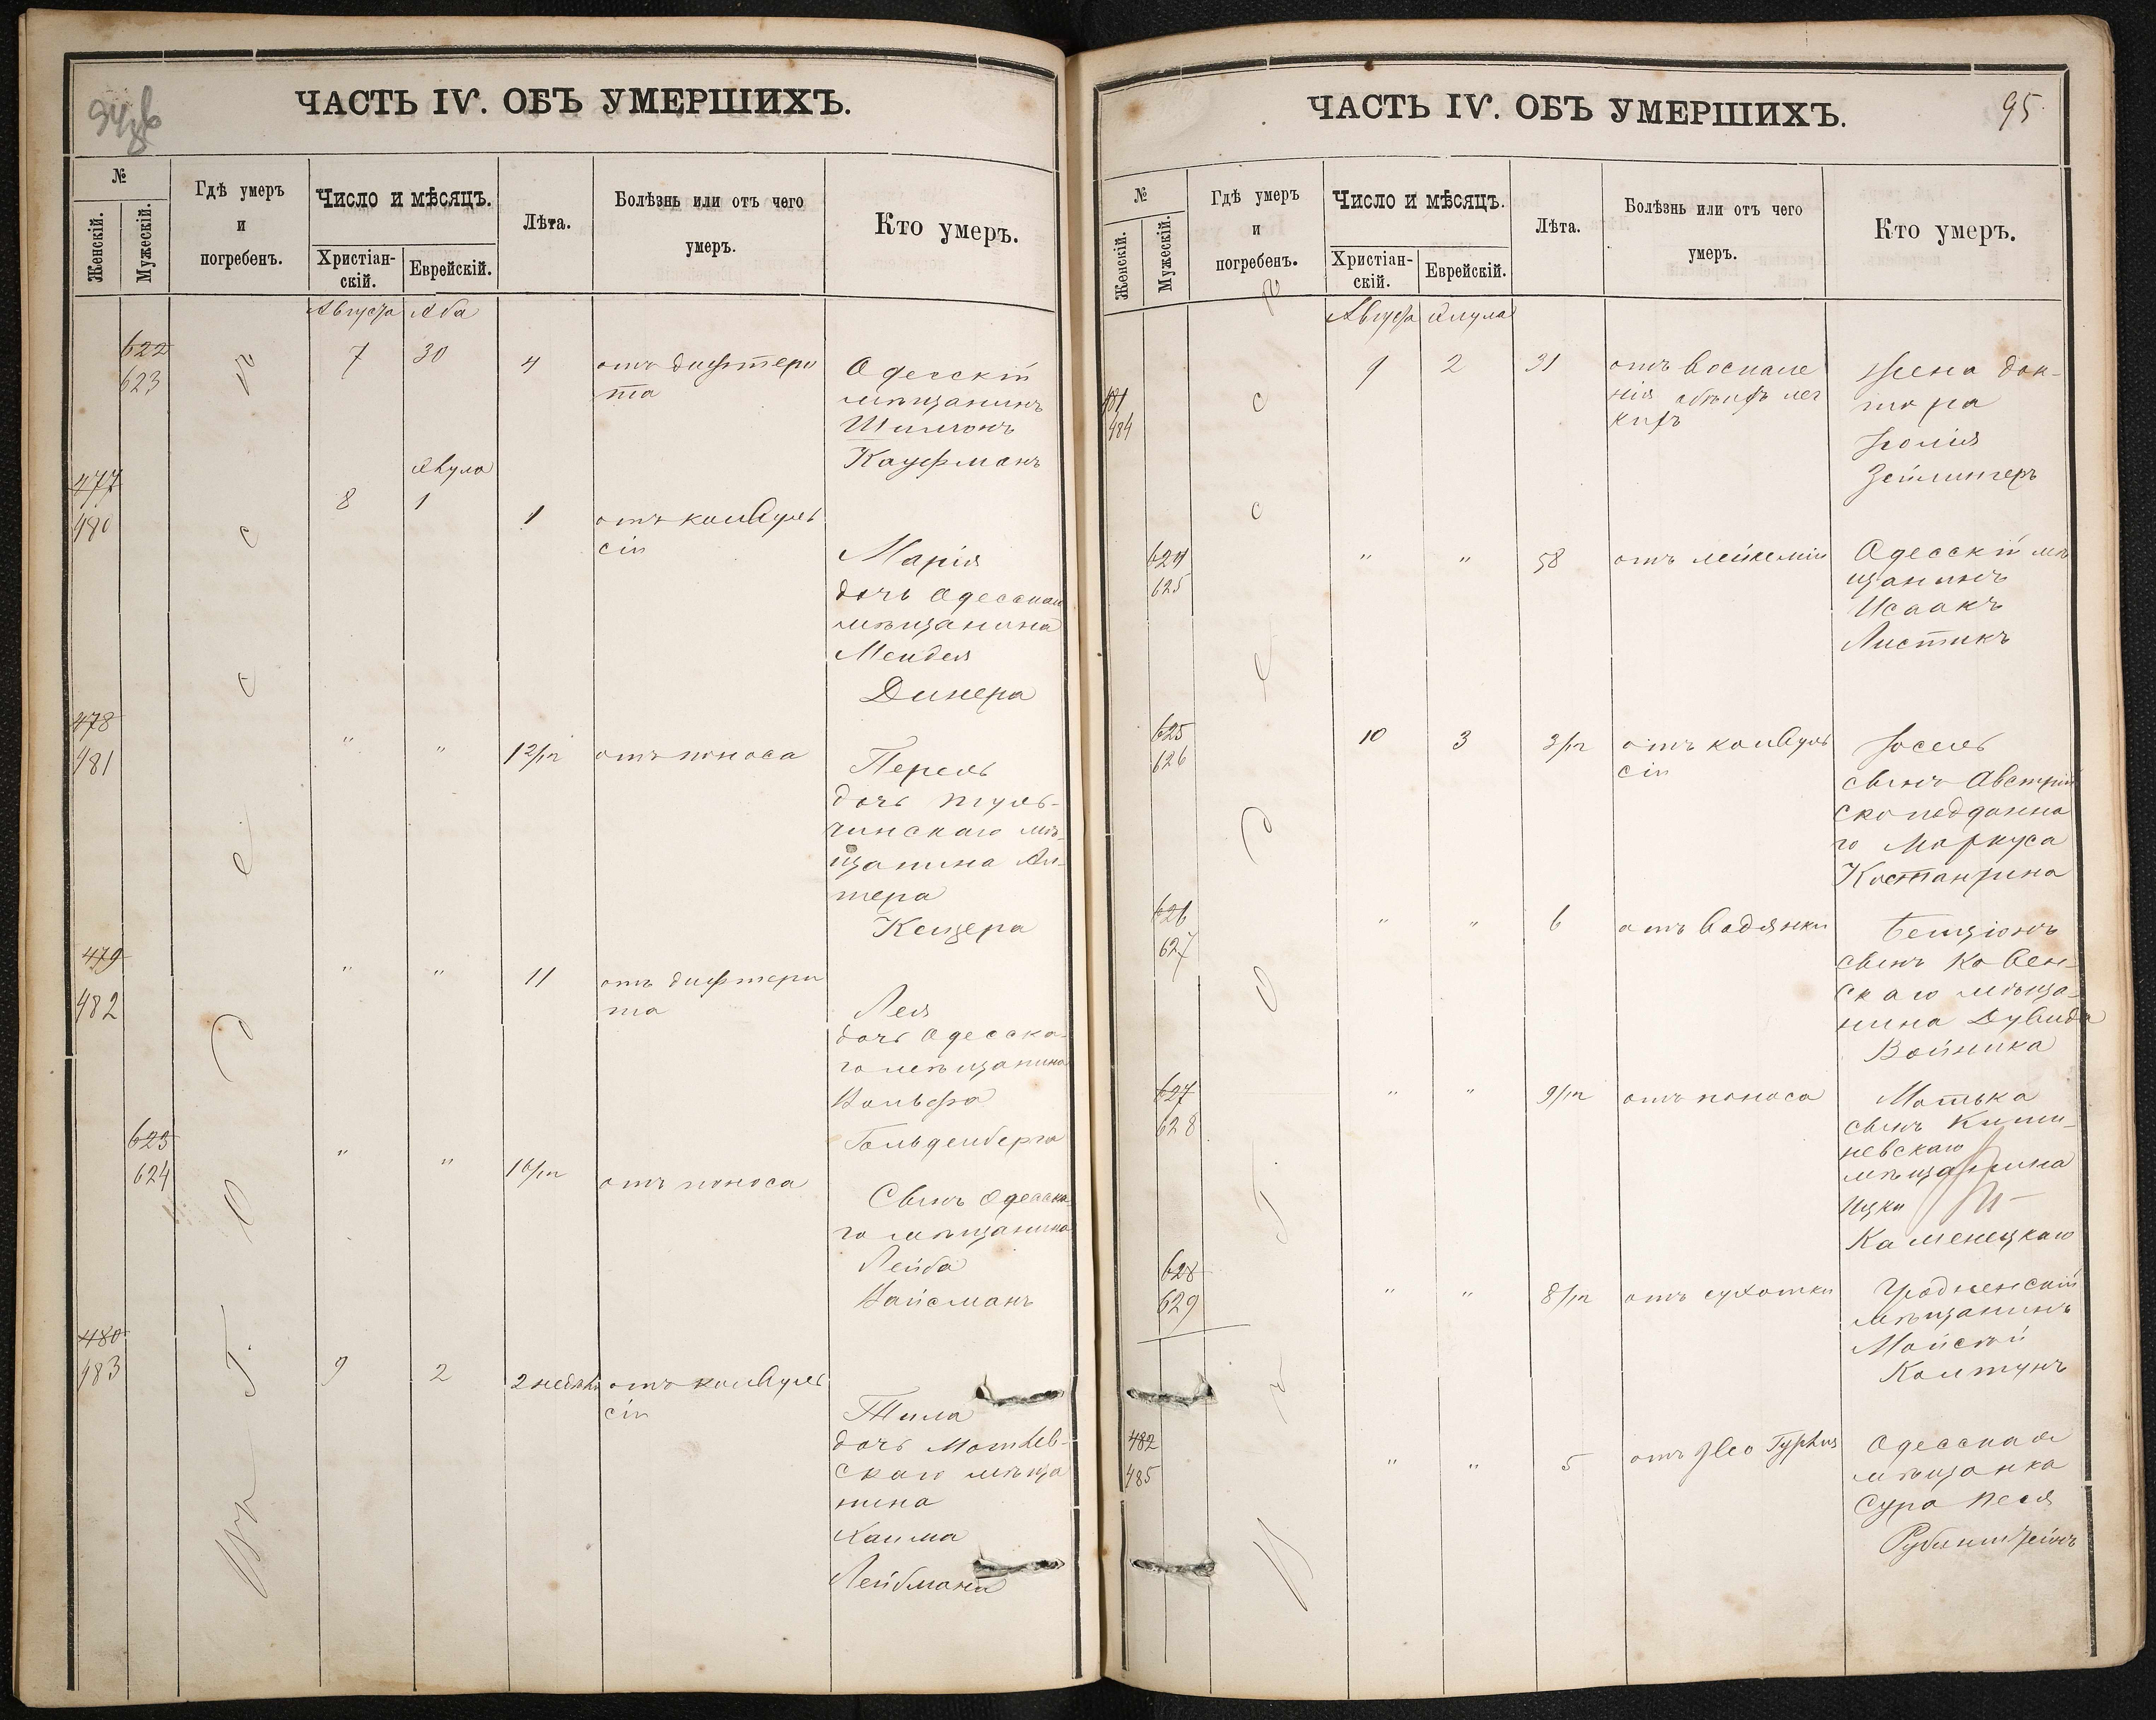 94 об
ЧАСТЬ IV. ОБЪ УМЕРШИХЪ.
№
Женскій.
Мужескій.
Гдѣ умеръ
и
погребенъ.
Число и мѣсяцъ.
Христіан-
скій.
Еврейскій.
Лѣта.
Болѣзнь или отъ чего
умеръ.
Кто умеръ.
Въ г. Одессѣ
Августа Аба
622
623
7 30 4 отъ дифтери
та
Одесскій
мѣщанинъ
Шимонъ
Кауфманъ
Элула
477
480
8 1 1 отъ конвуль
сіи
Марія
дочь Одесскаго
мѣщанина
Менделя
Динера
478
481
" " 1 2/12 отъ поноса
Перель
дочь Туль-
чинскаго мѣ-
щанина Ал-
тера
Кецера
479
482
" " 11 отъ дифтери
та
Лея
дочь Одесска-
го мѣщанина
Вольфа
Гольденберга
623
624
" " 1 6/12 отъ поноса
Сынъ Одесска-
го мѣщанина
Лейба
Вайсманъ
480
483
9 2 2 недѣли отъ конвуль
сіи
Тила
дочь
скаго мѣща
нина
Хаима
Лейбмана
ЧАСТЬ IV. ОБЪ УМЕРШИХЪ.
95
№
Женскій.
Мужескій.
Гдѣ умеръ
и
погребенъ.
Число и мѣсяцъ.
Христіан-
скій.
Еврейскій.
Лѣта.
Болѣзнь или отъ чего
умеръ.
Кто умеръ.
Въ г. Одессѣ
Августа Элула
481
484
9 2 31 отъ воспале
нія обѣихъ лег
кихъ
Жена док-
тора
Юлія
Зейлингеръ
624
625
" " 58 отъ лейкеміи
Одесскій мѣ
щанинъ
Исаакъ
Листикъ
625
626
10 3 3/12 отъ конвуль
сіи
Іосель
сынъ Австрій
скоподданна
го Маркуса
Костантина
626
627
" " 6 отъ водянки
Бенціонъ
сынъ Ковен-
скаго мѣща-
нина Дувида
Войника
627
628
" " 9/12 отъ поноса
Мотька
сынъ Киши-
невскаго
мѣщанина
Ицки
Каменецкаго
628
629
" " 8/12 отъ сухотки
Гродненскій
мѣщанинъ
Мойсей
Колтунъ
482
485
" " 5 отъ Ileo Typhus
Одесская
мѣщанка
Сура Песя
Рубинштейнъ